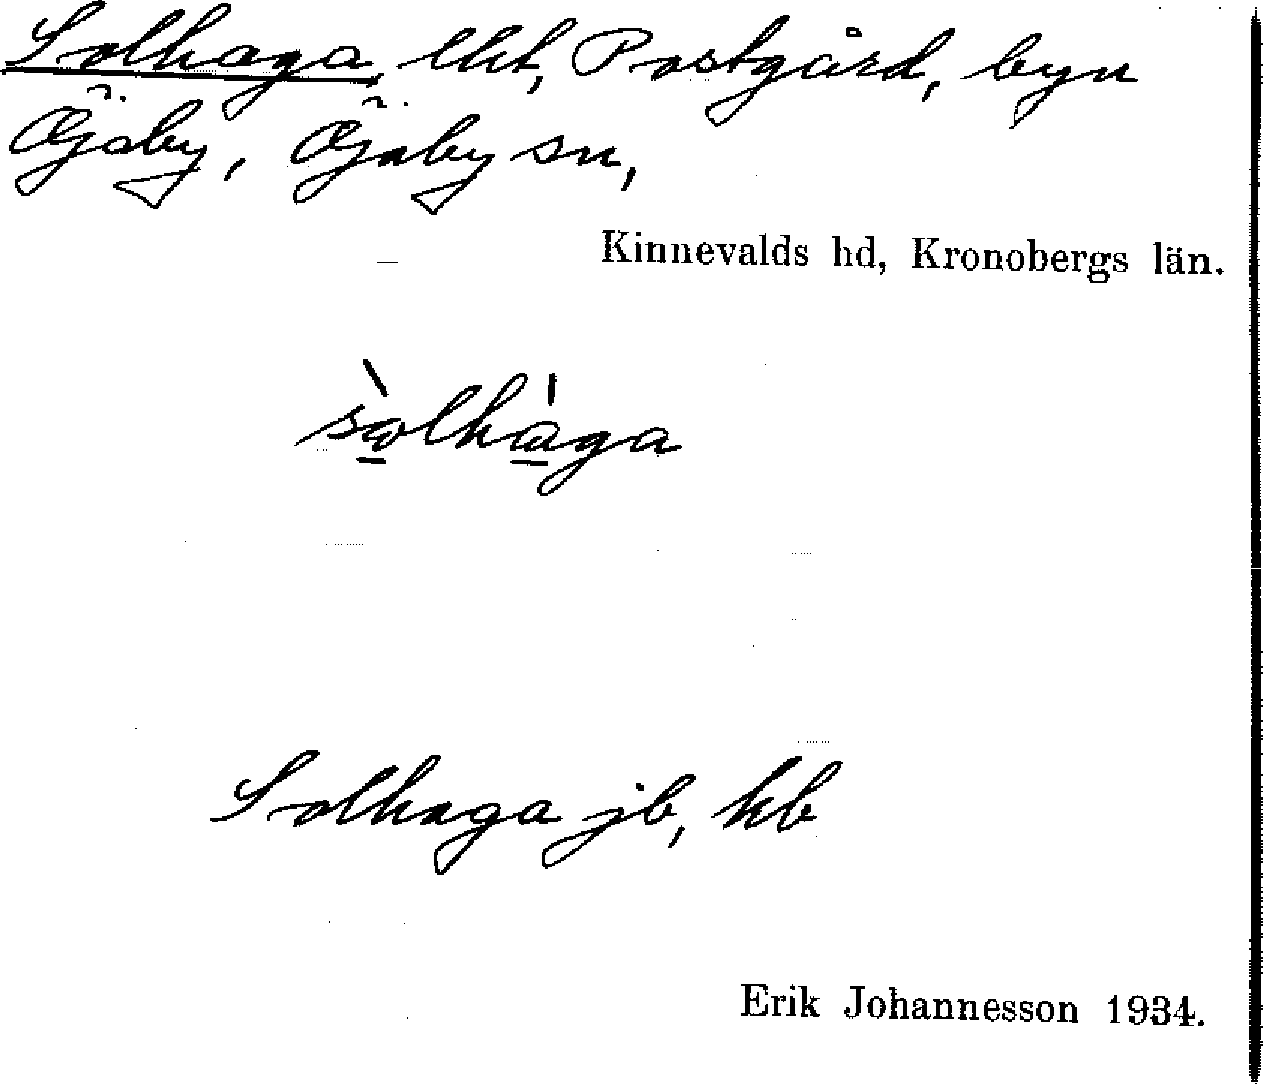 Solhaga, lht, Postgård, byn
Öjaby, Öjaby sn,
Kinnevalds hd, Kronobergs län.
sòlhàga
Solhaga jb, kb
Erik Johannesson 1934.